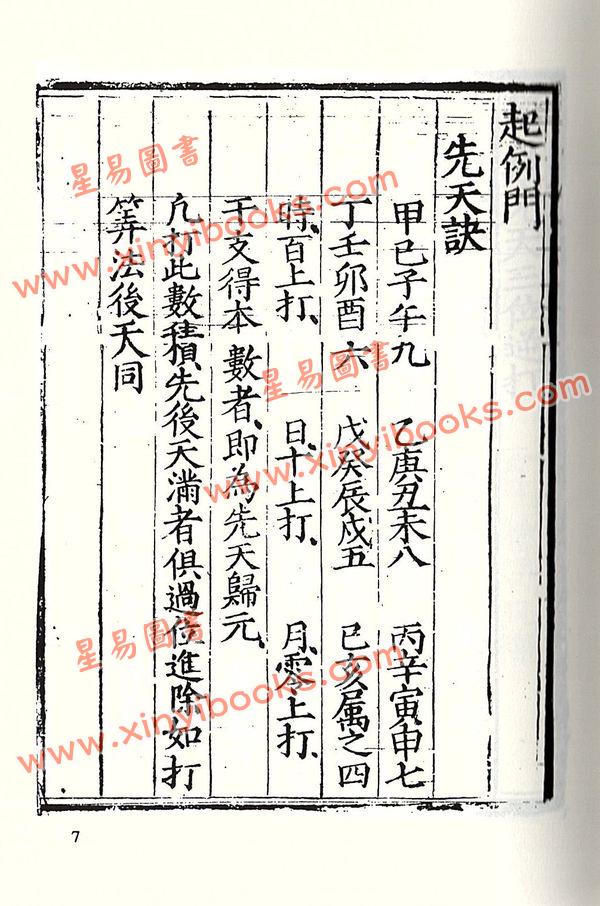 起例門
先天訣
甲己子午九　乙庚丑未八　丙辛寅申七
丁壬卯酉六　戊癸辰戌五　巳亥属之四
時、百上打、　日、十上打、　月、零上打、
干支得本數者、即為先天歸元、
凢打此數積、先後天滿者俱過位進除如打
筭法後天同
7
星易圖書
www.xinyibooks.com
星易圖書
www.xinyibooks.com
星易圖書
www.xinyibooks.com